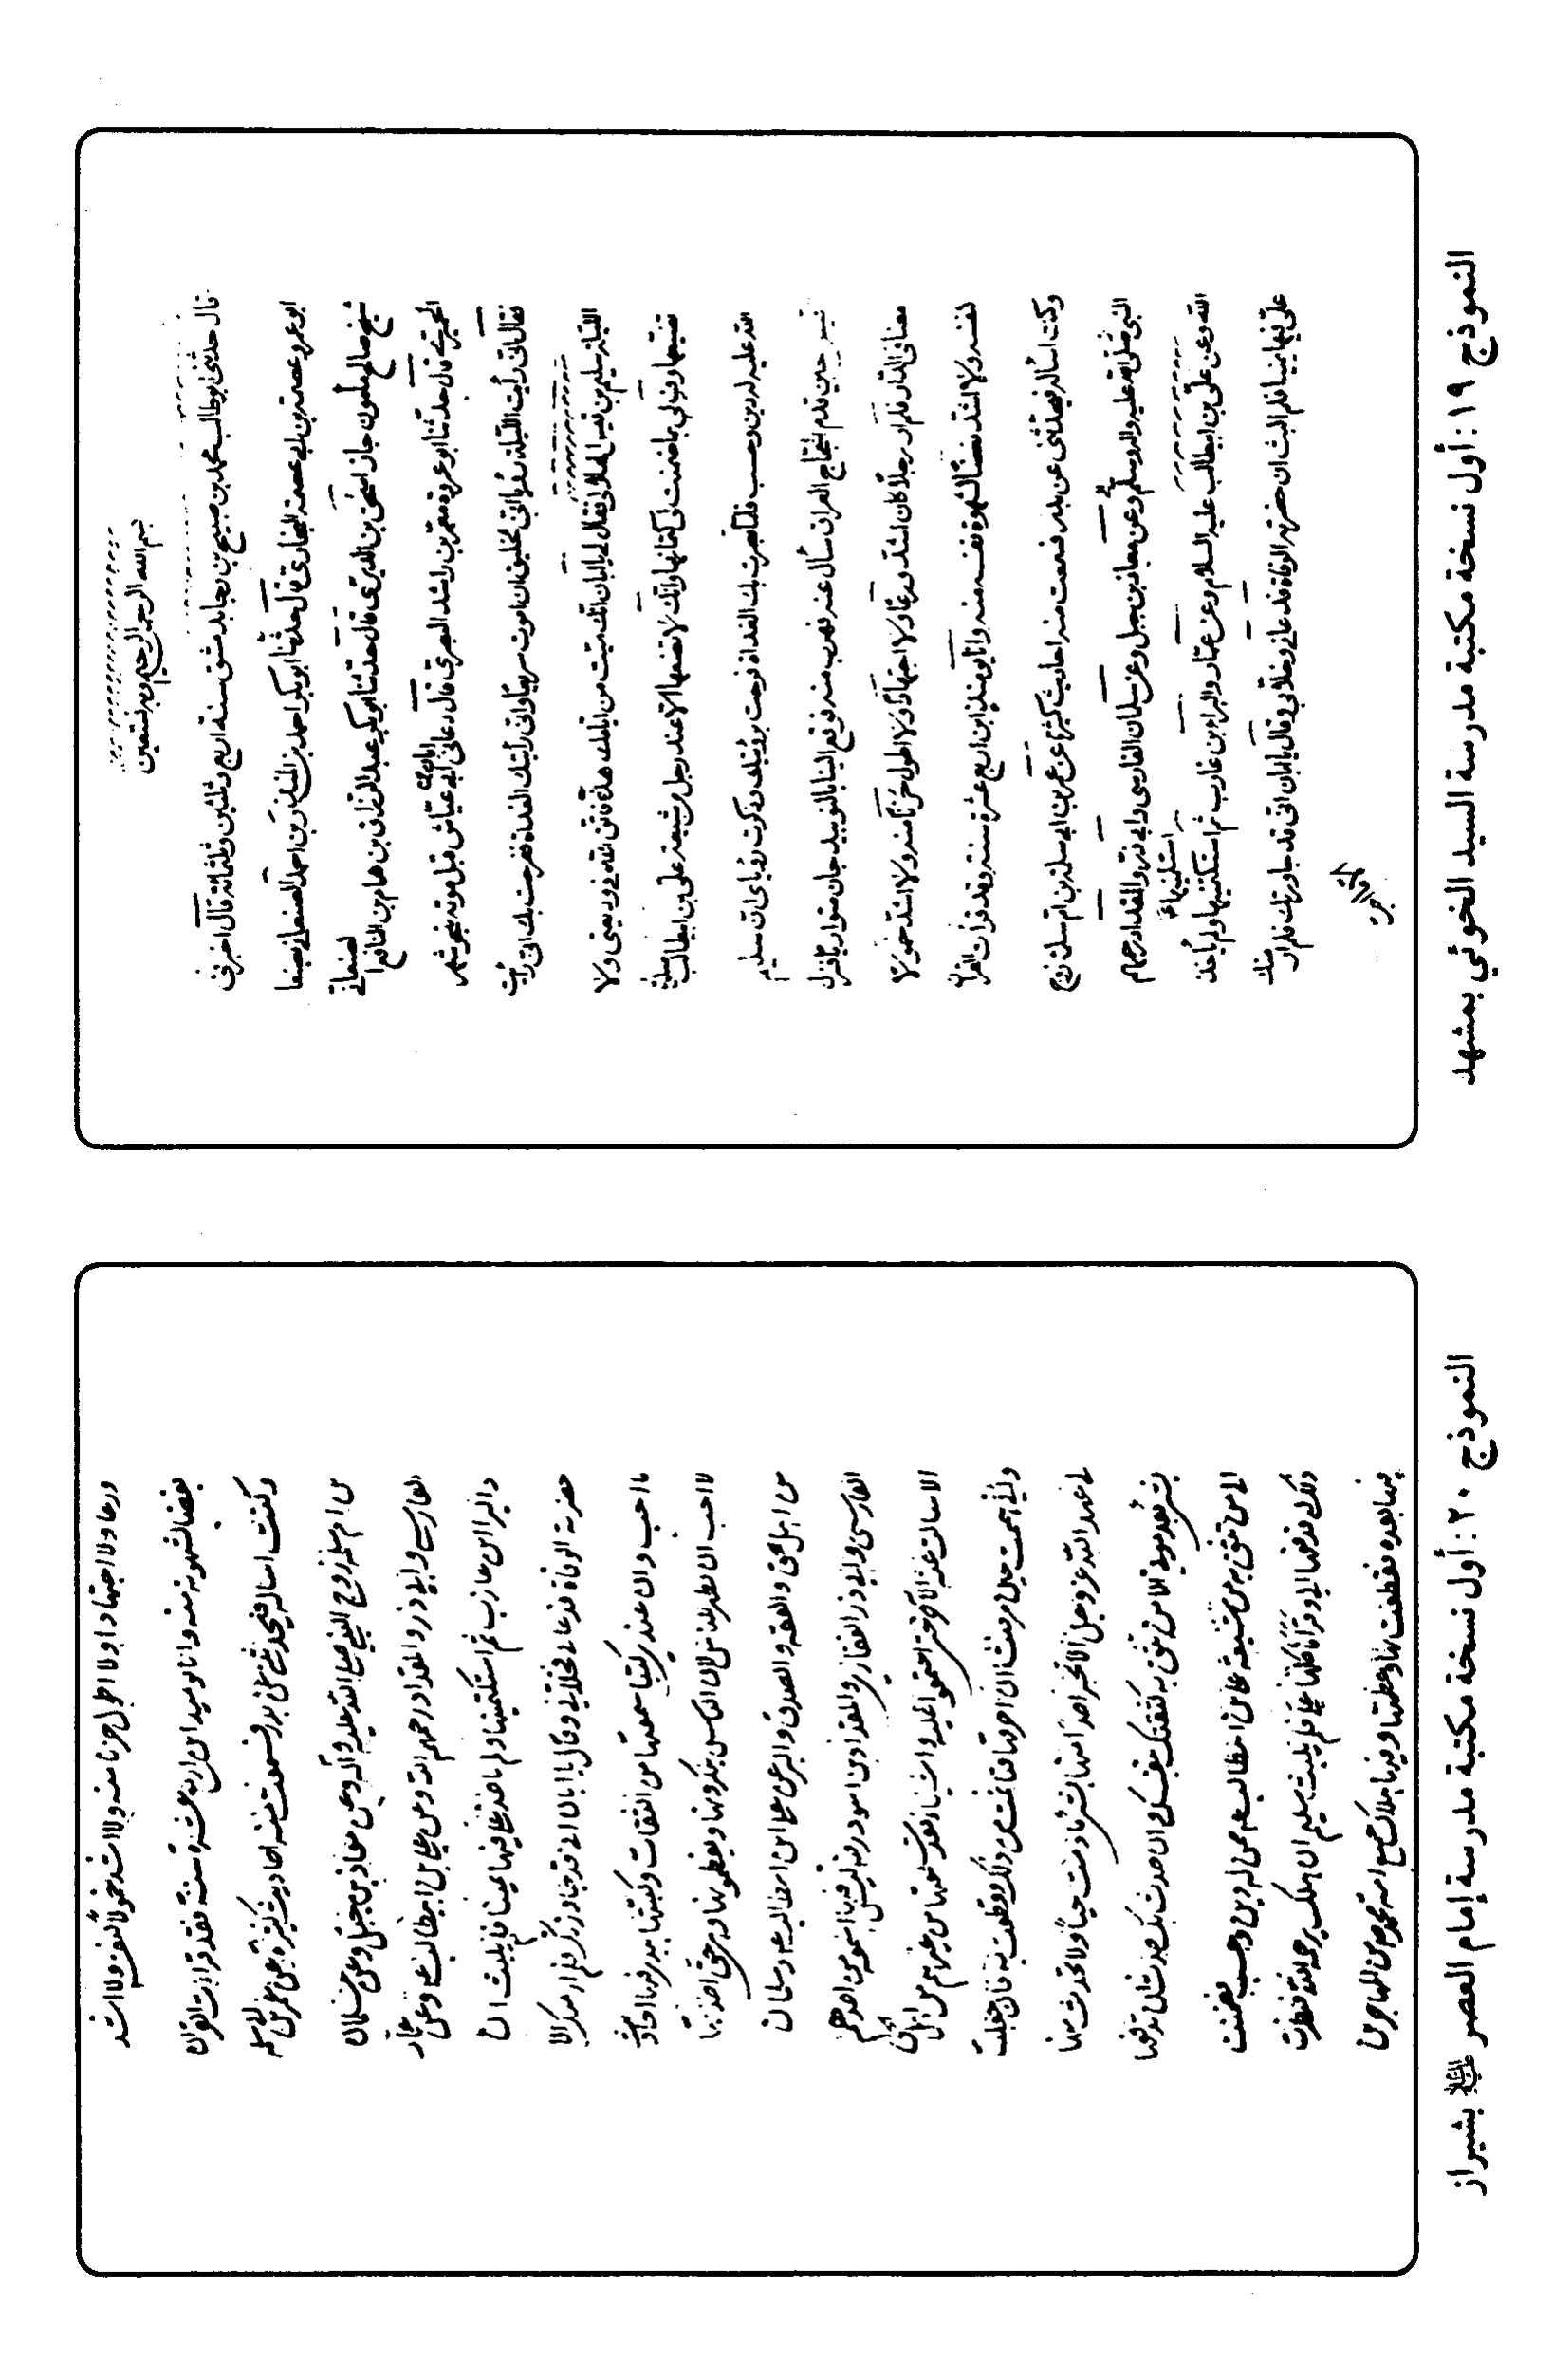 بسم الله الرحمن الرحيم وبه نستعين
قال حدثنى ابو طالب محمد بن صبيح بن رجا بدمشق سنة اربع وثلثين وثلثمائة قال اخبرنى
ابو عمرو عصمة بن ابى عصمة البخارى قال حدثنا ابو بكر احمد بن المنذر بن احمد الصنعانى بصنعا
شيخ صالح مأمون جار اسحق بن الدبرى قال حدثنا ابو بكر عبد الرزاق بن همام بن النافع الصنعانى
الحميرى قال حدثنا ابو عروة معمر بن راشد البصرى قال دعانى ابى عياش قبل موته بنحو شهر
فقال انى رأيت الليلة رؤيا انى لخليق ان اموت سريعا وانى رأيتك الغداة ففرحت بك انى رأيت
الليلة سليم بن قيس الهلالى فقال لى يا ابان انك ميت من ايامك هذه فاتق الله فى وديعتى ولا
تضيعها وف لى بما ضمنت لى كتمانها وانك لا تضعها الا عند رجل من شيعة على بن ابيطالب صلوات
الله عليه له دين وحسب فلما بصرت بك الغداة فرحت برؤيتك وذكرت رؤياى ان سليم
حين قدم الحجاج العراق سأل عنه فهرب منه فوقع الينا بالنوبندجان متواريا فنزل
معنا فى الدار فلم ار رجلا كان اشد ورعا ولا اجتهادا ولا اطول حزنا منه ولا اشد خمولا
لنفسه ولا اشد بغضا لشهوة نفسه منه وانا يومئذ ابن اربع عشرة سنة وقد قرأت القرآن
وكنت اسأله فيحدثنى عن بدر فسمعت منه احاديث كثيرة عن عمر بن ابى سلمة بن ام سلمة زوج
النبى صلى الله عليه واله وسلم وعن معاذ بن جبل وعن سلمان الفارسى وابى ذر والمقداد رحمهم
الله وعن على بن ابيطالب عليه السلام وعن عمار والبرا بن عازب ثم استكتمنيها ولم يأخذ
على فيها يمينا فلم البث ان حضرته الوفاة فدعانى وخلا بى وقال يا ابان انى قد جاورتك فلم ار منك
النموذج ١٩: أول نسخة مكتبة مدرسة السيد الخوئي بمشهد
ورعا ولا اجتهادا ولا اطول حزنا منه ولا اشد خمولا لنفسه ولا اشد
بغضا لشهوة منه وانا يوميد ابن اربع عشرة سنة فقد قرات القران
وكنت اساله فيحدثنى عن بدر فسمعت منه احاديث كثيرة عن عمر بن ابى سلمه
بن ام سلمة زوج النبى صلى الله عليه وآله وعن معاذ بن جبل وعن سلمان
الفارسى وابى ذر والمقداد رحمهم الله وعن على بن ابيطالب ع وعن عمار
والبرا بن عازب ثم استكتمنيها ولم ياخذ على فيها يمينا فلم يلبث ان
حضرته الوفاة فدعانى فخلا بى وقال يا ابان انى قد جاورتكم فلم ار منك الا
ما احب وان عندى كتبا سمعتها من الثقات وكتبتها بيدى فيها احاديث
لا احب ان تظهر للناس لان الناس ينكرونها ويعظمونها وهى حق اخذتها
من اهل الحق والفقه والصدق والبر عن على ابن ابيطالب ع وسلمان
الفارسى وابى ذر الغفارى والمقداد بن اسود وليس فيها اسمعه من احدهم
الا سالت عنه الآخر حتى اجتمعوا عليه واشياء بعد سمعتها من غيرهم من اهل الحق
وانى هممت حين مرضت ان احرقها فتاثمت من ذلك وقطعت به فان جعلت
لى عهد الله عز وجل الا تخبر احدا منها بشئ مادمت حيا ولا تحدث منها
بشئ بعد موتى الا من تثق به كثقتك بنفسك وان حدث بك حدث ان تدفعها
الى من تثق به من شيعة على بن ابيطالب ع ممن له دين وحسب فضمنت
ذلك فدفعها الى وقرأ كلها على فلم يلبث سليم ان هلك يرحمه الله فنظرت
فيها بعده فقطعت بها وعظمتها وفيها هلاك جميع امة محمد ص من المهاجرين
النموذج ٢٠: أول نسخة مكتبة مدرسة إمام العصر ﷿ بشيراز